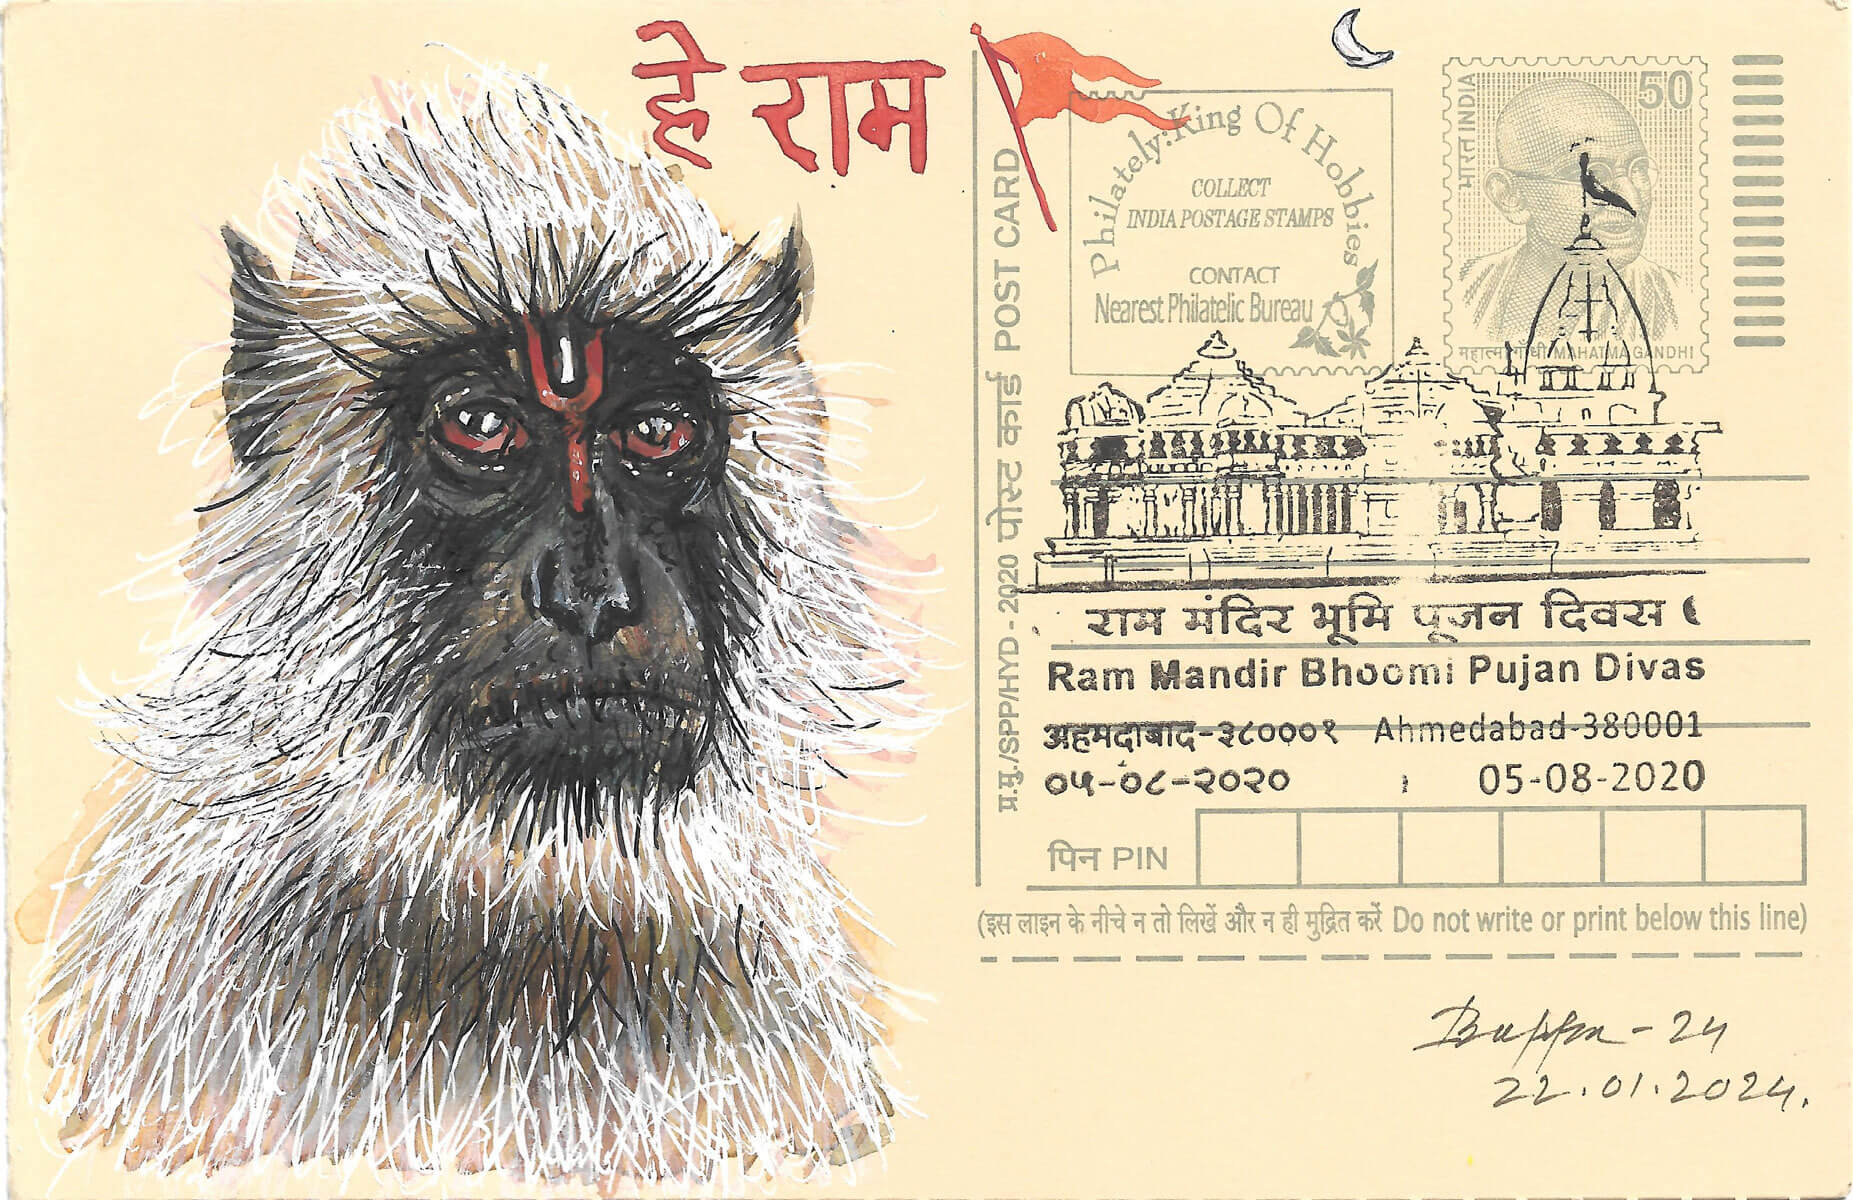 हे राम
Philately: King Of Hobbies
COLLECT
INDIA POSTAGE STAMPS
CONTACT
Nearest Philatelic Bureau
भारत INDIA
50
महात्मा गाँधी MAHATMA GANDHI
प्र.मु./SPP/HYD - 2020 पोस्ट कार्ड POST CARD
राम मंदिर भूमि पूजन दिवस
Ram Mandir Bhoomi Pujan Divas
अहमदाबाद-३८०००१ Ahmedabad-380001
०५-०८-२०२० 05-08-2020
पिन PIN
(इस लाइन के नीचे न तो लिखें और न ही मुद्रित करें Do not write or print below this line)
Bappa - 24
22.01.2024.